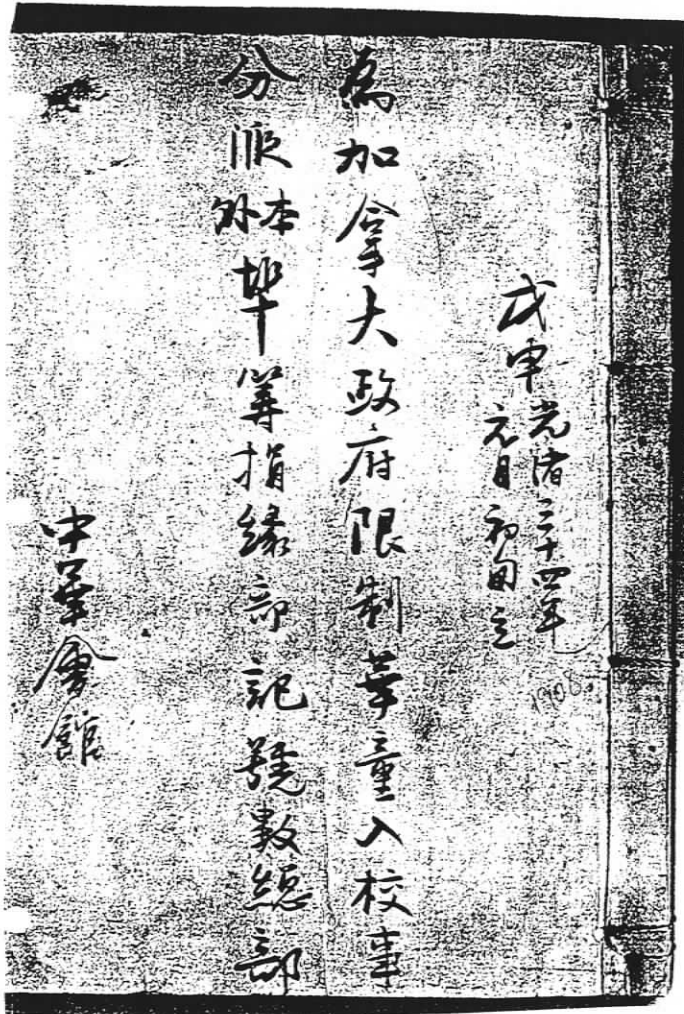 戊申光緒三十四年
元月初旬立
1908
為加拿大政府限制華童入校事
分派本外埠籌捐緣部記號數總部
中華會館